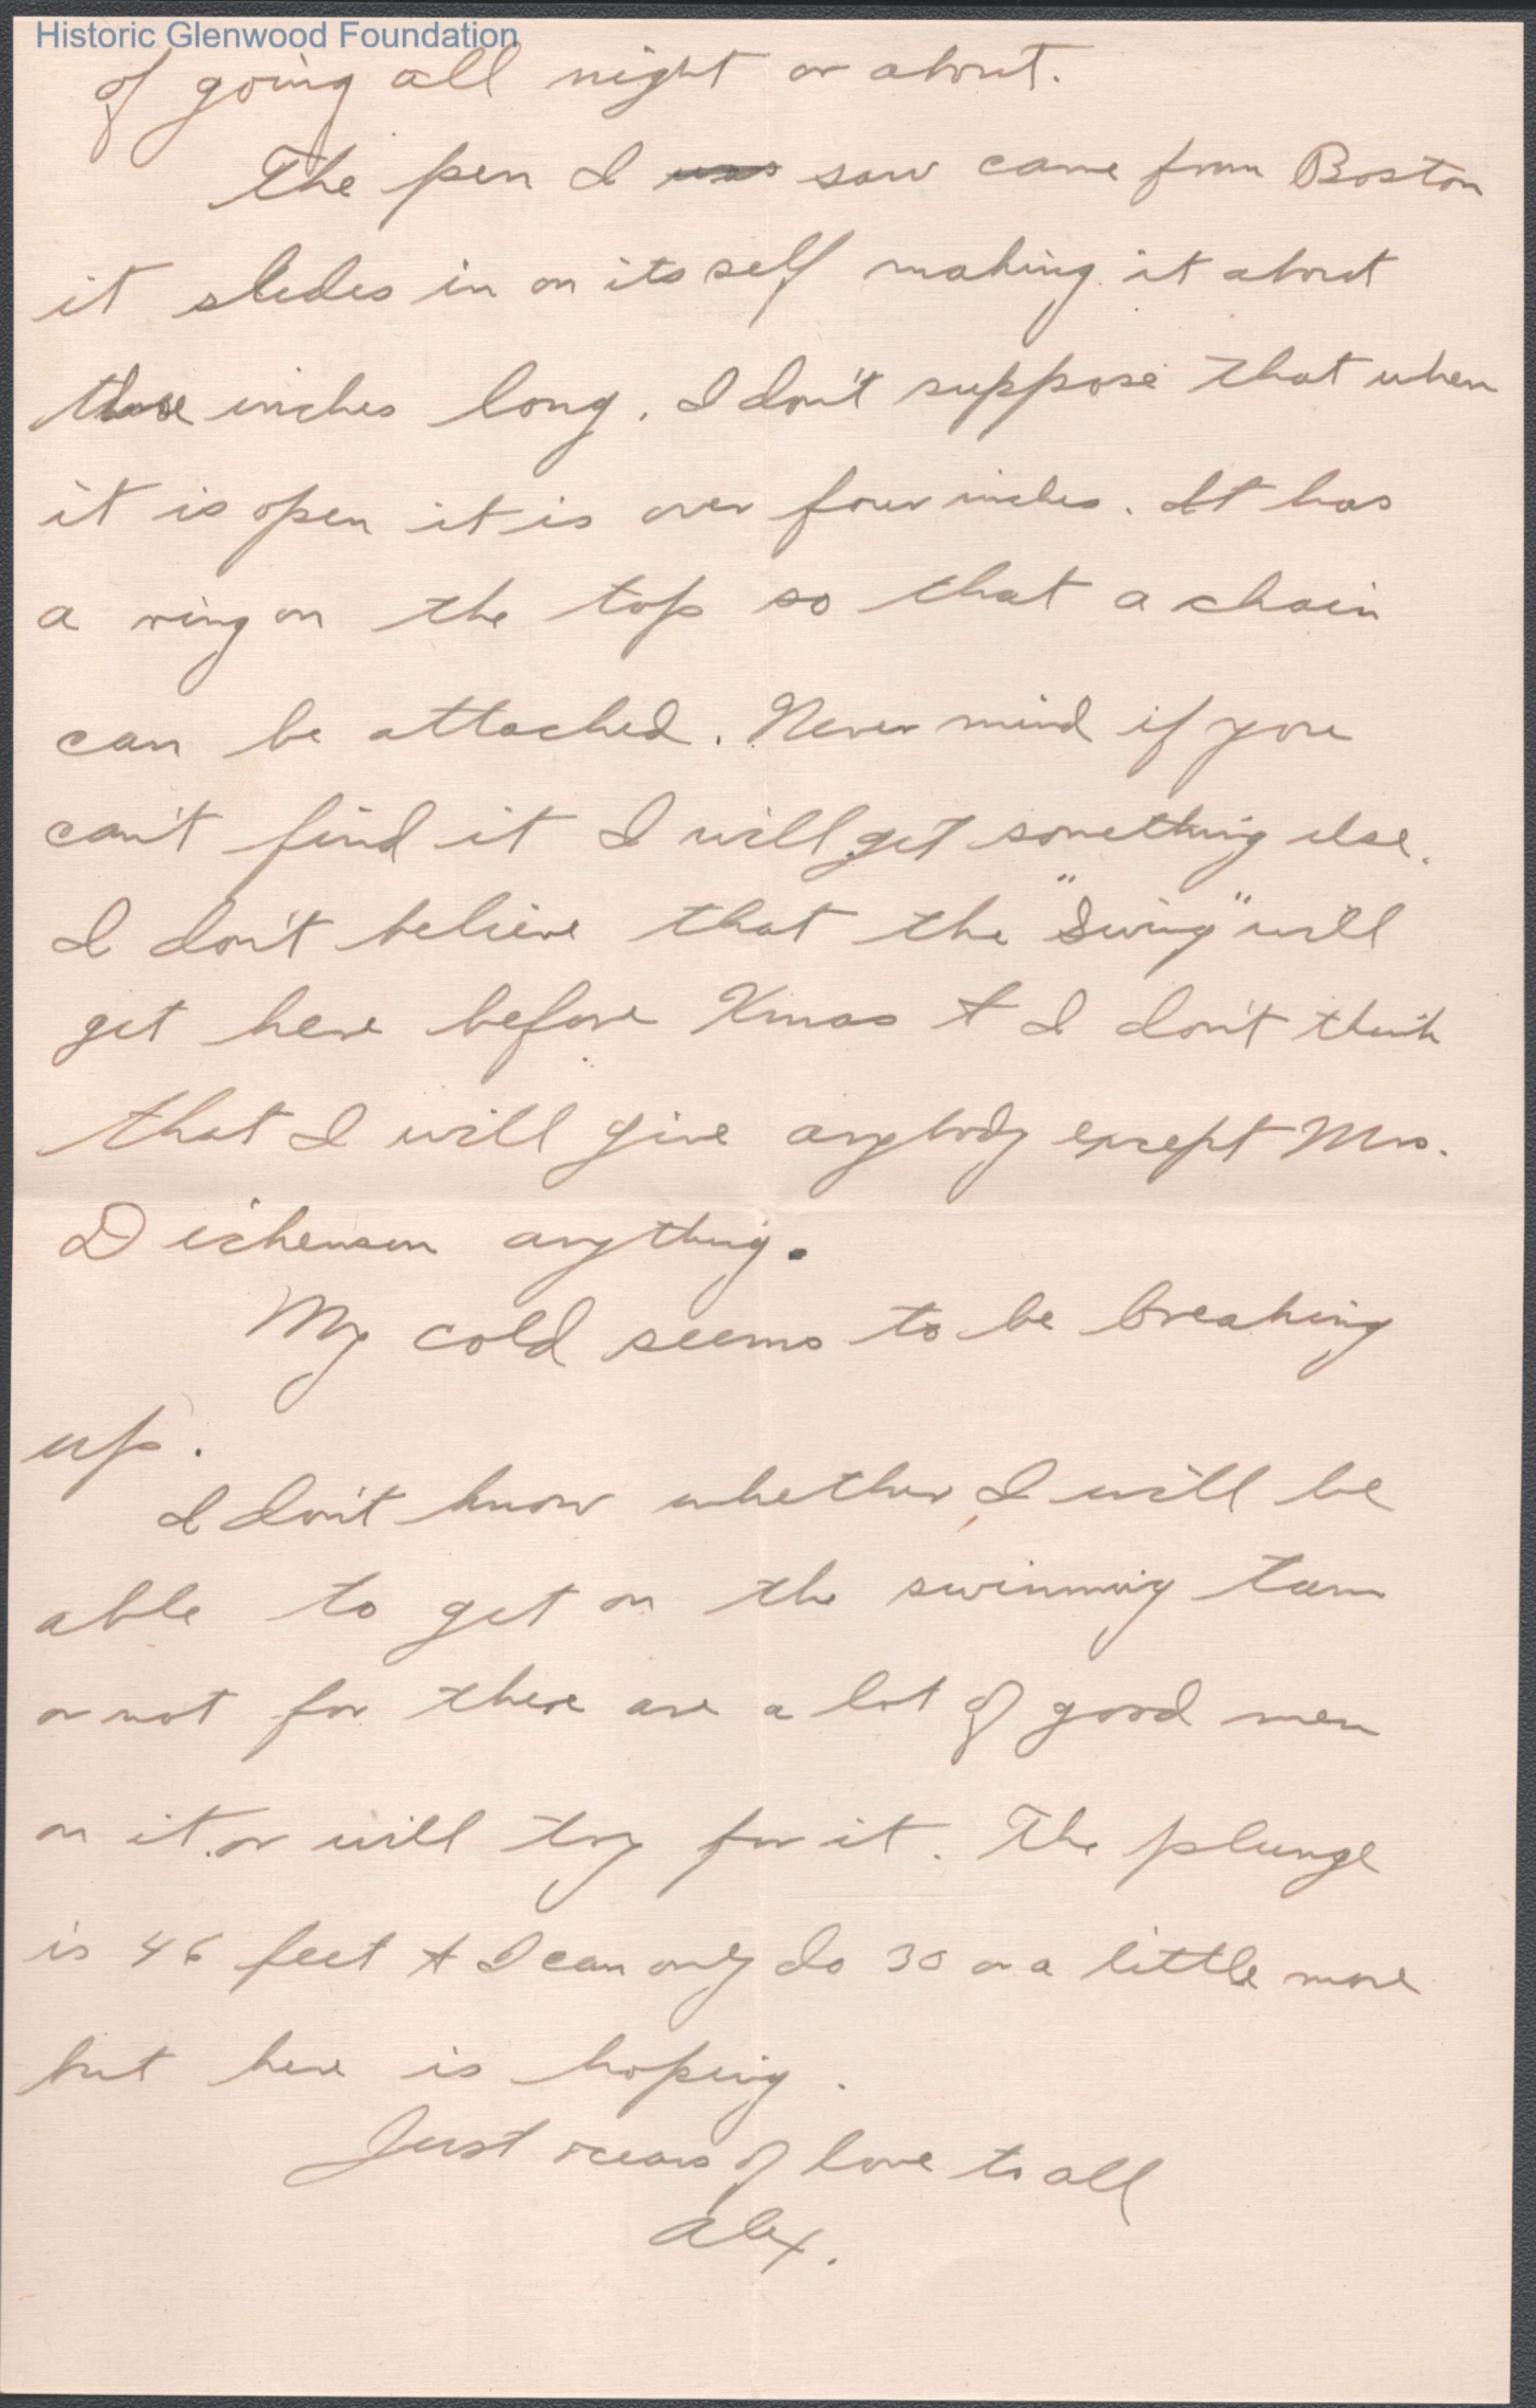 Historic Glenwood Foundation
of going all night or about.
The pen I was saw came from Boston
it slides in on its self making it about
three inches long. I don't suppose that when
it is open it is over four inches. It has
a ring on the top so that a chain
can be attached. Never mind if you
can't find it I will get something else.
I don't believe that the "Swing" will
get here before Xmas + I don't think
that I will give anybody except Mrs.
Dickenson anything.
My cold seems to be breaking
up.
I don't know whether I will be
able to get on the swimming team
or not for there are a lot of good men
on it or will try for it. The plunge
is 46 feet + I can only do 30 or a little more
but here is hoping.
Just oceans of love to all
Alex.